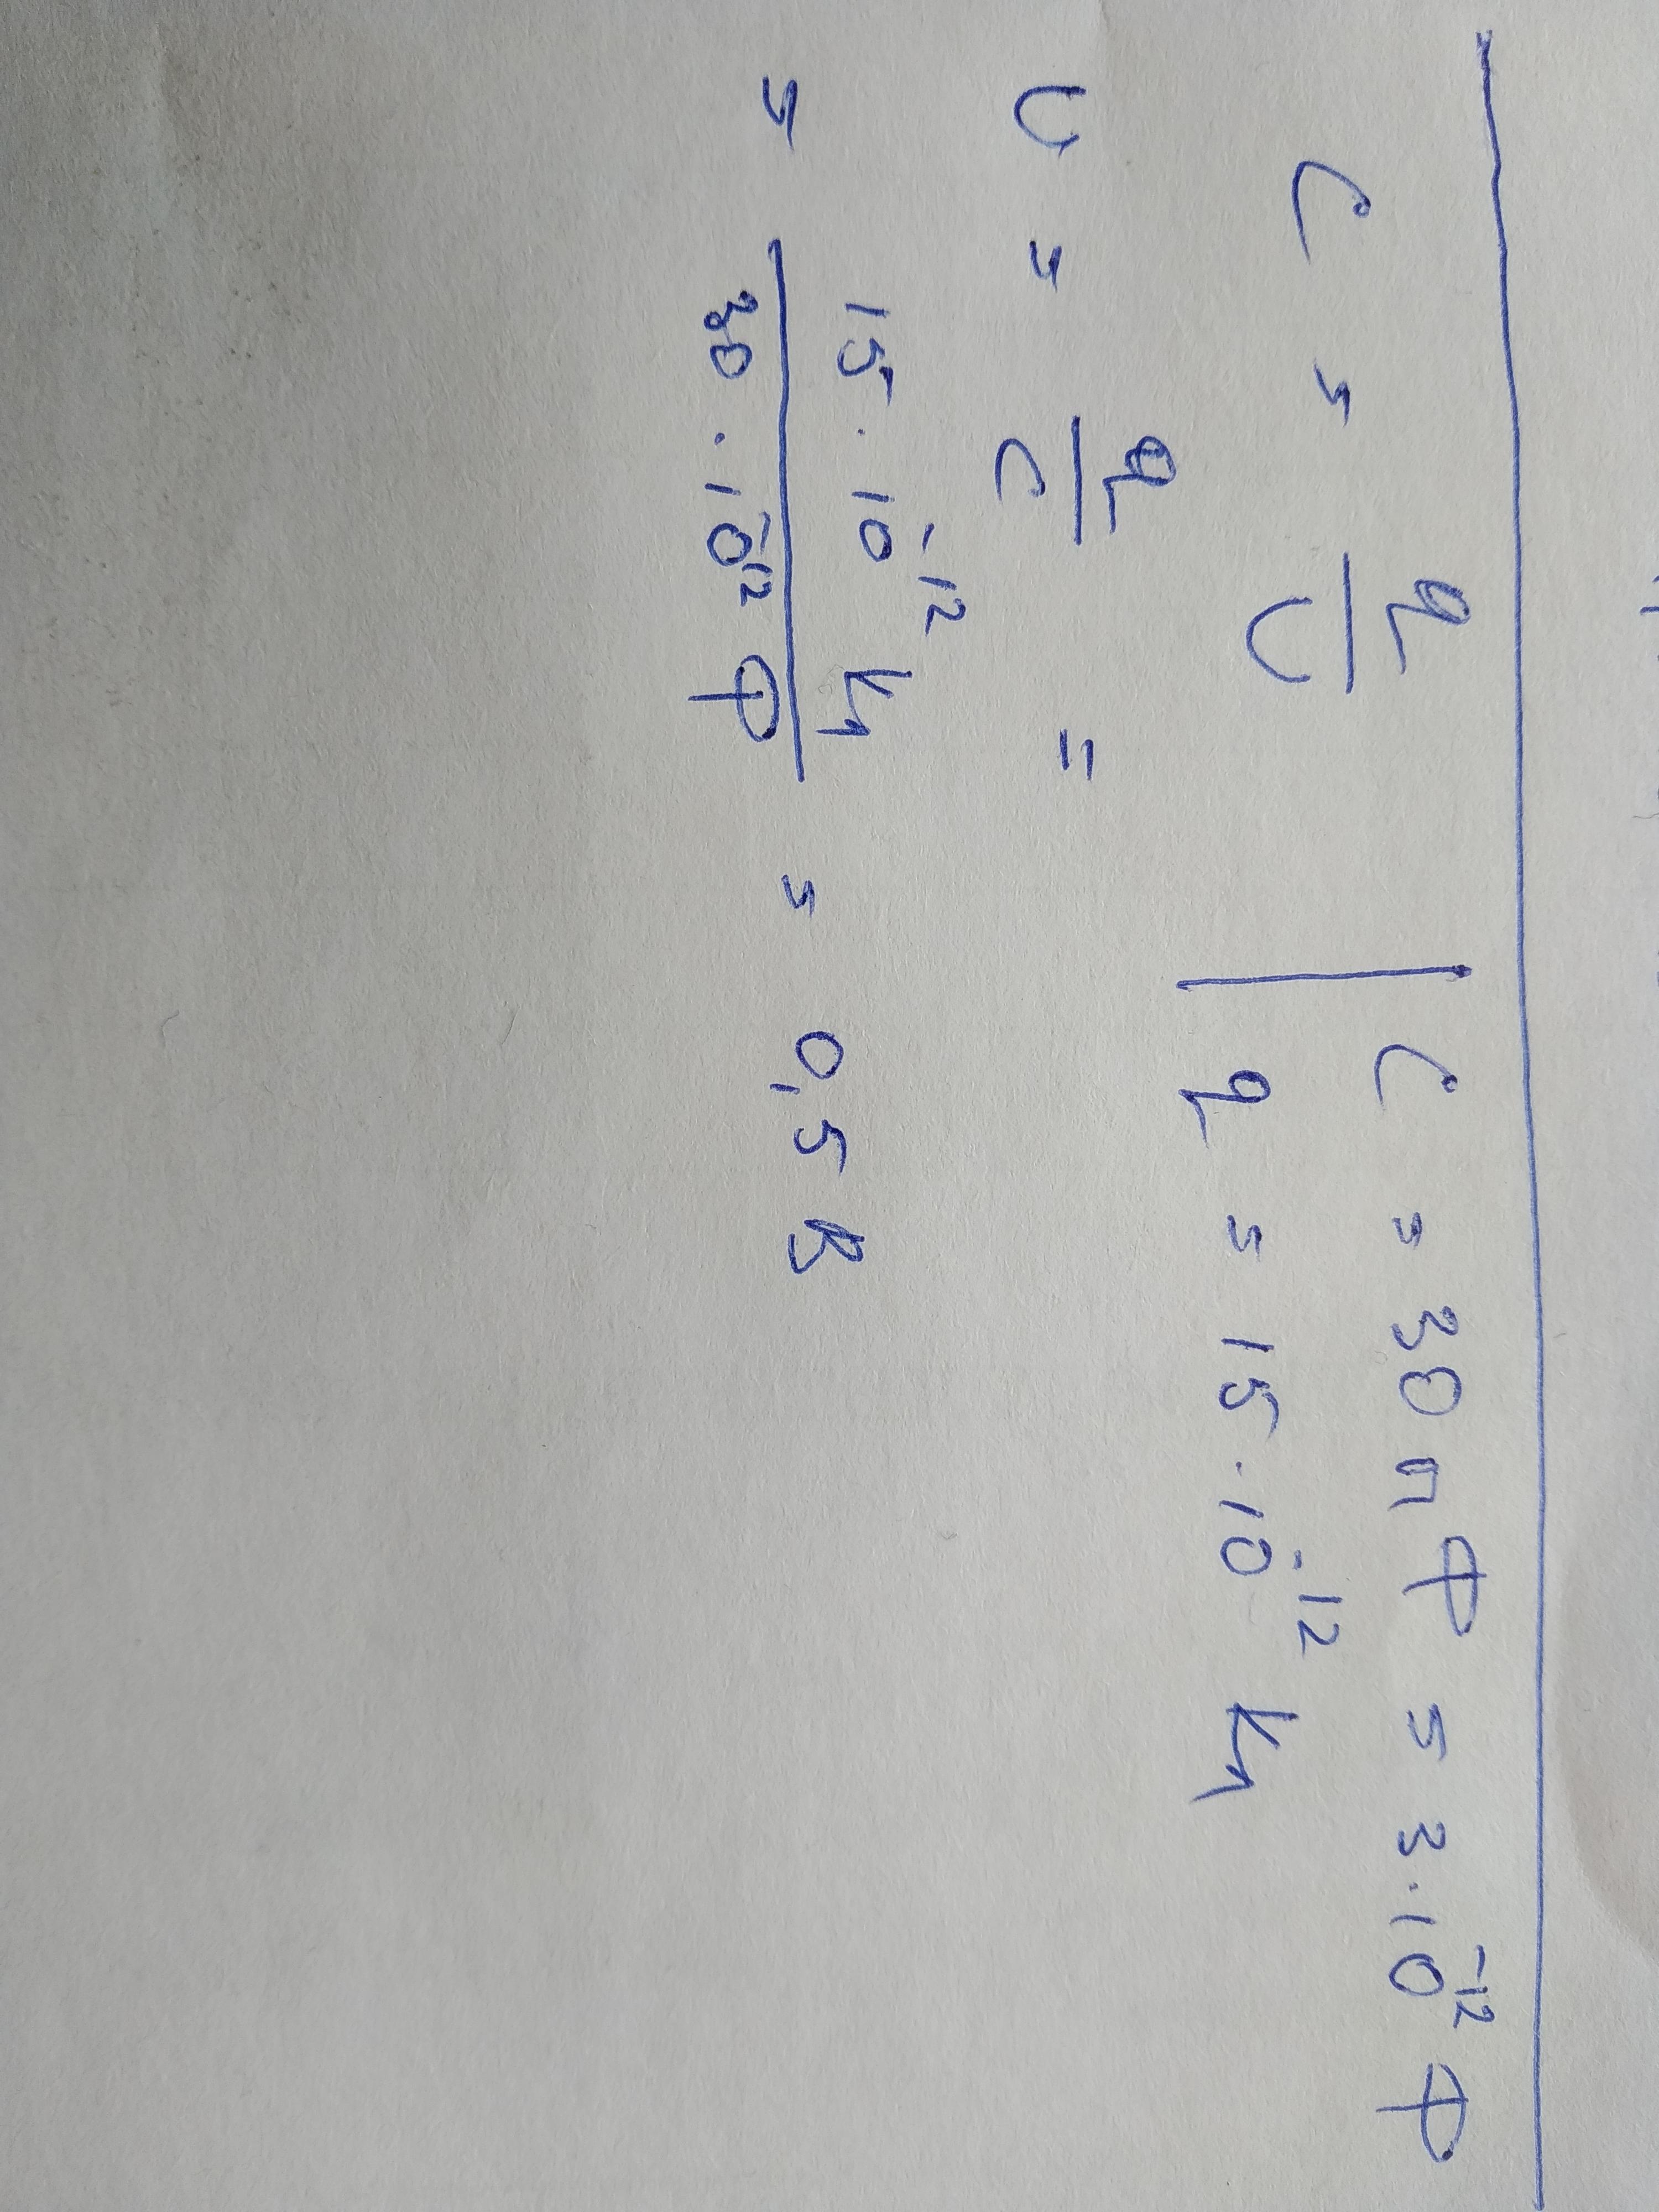 C = q/U | C = 30 пФ = 3·10⁻¹² Ф
q = 15·10⁻¹² Кл
U = q/C =
= 15·10⁻¹² Кл / 30·10⁻¹² Ф = 0,5 В